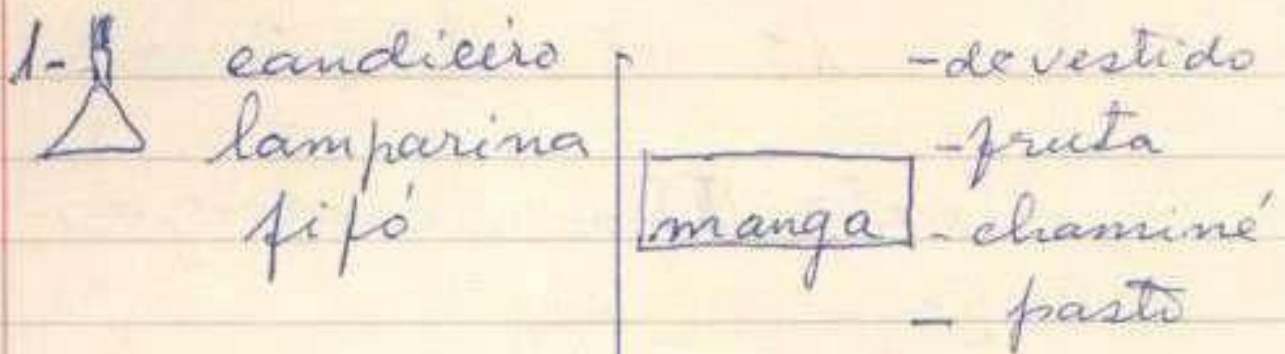 1- candieeiro
lamparina
fifó
manga
- de vestido
- fruta
- chaminé
- pasto